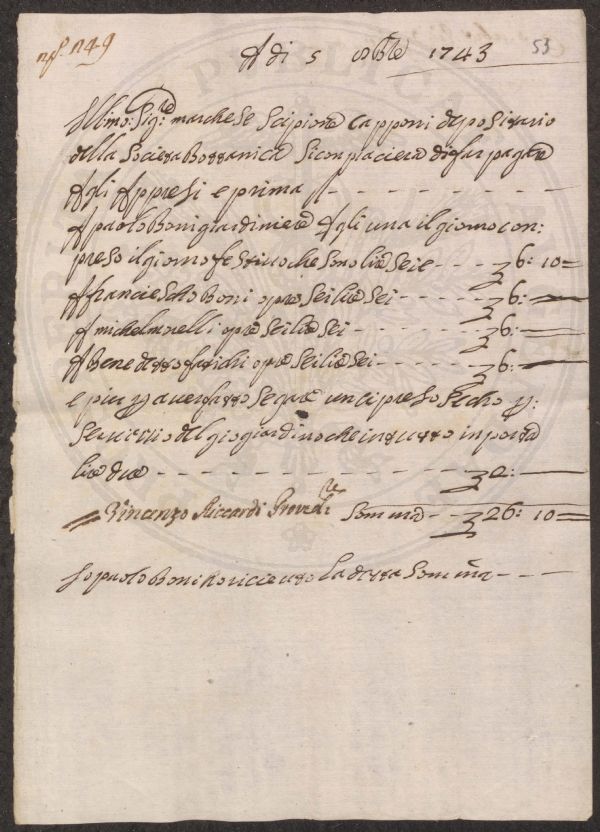 n.º 149
53
A di 5 8bre 1743
Illmo: Sigre: marchese Scipione Capponi depositario
della Società Bottanica Sicompiacierà difar pagare
Agli Appresi e prima
A paolo Boni giardiniere Agli una il giorno con:
preso il giorno festivo che sono lire Seie - - - £ 6: 10
A franciescho Boni opre Sei lire Sei - - - - - £ 6:
A michel nelli opre Sei lire Sei - - - - - £ 6:
A Benedetto opre Sei lire Sei - - - - - £ 6:
e piu p averfatto Segare un cipresso Secho p:
Servizio del giardino che in tutto inporta
lire due - - - - - - - - - - £ 2:
Vincenzo Riccardi Provedre Somma - - £ 26: 10
Io paolo Boni o ricieuto La detta Somma - - -
PUBLICA